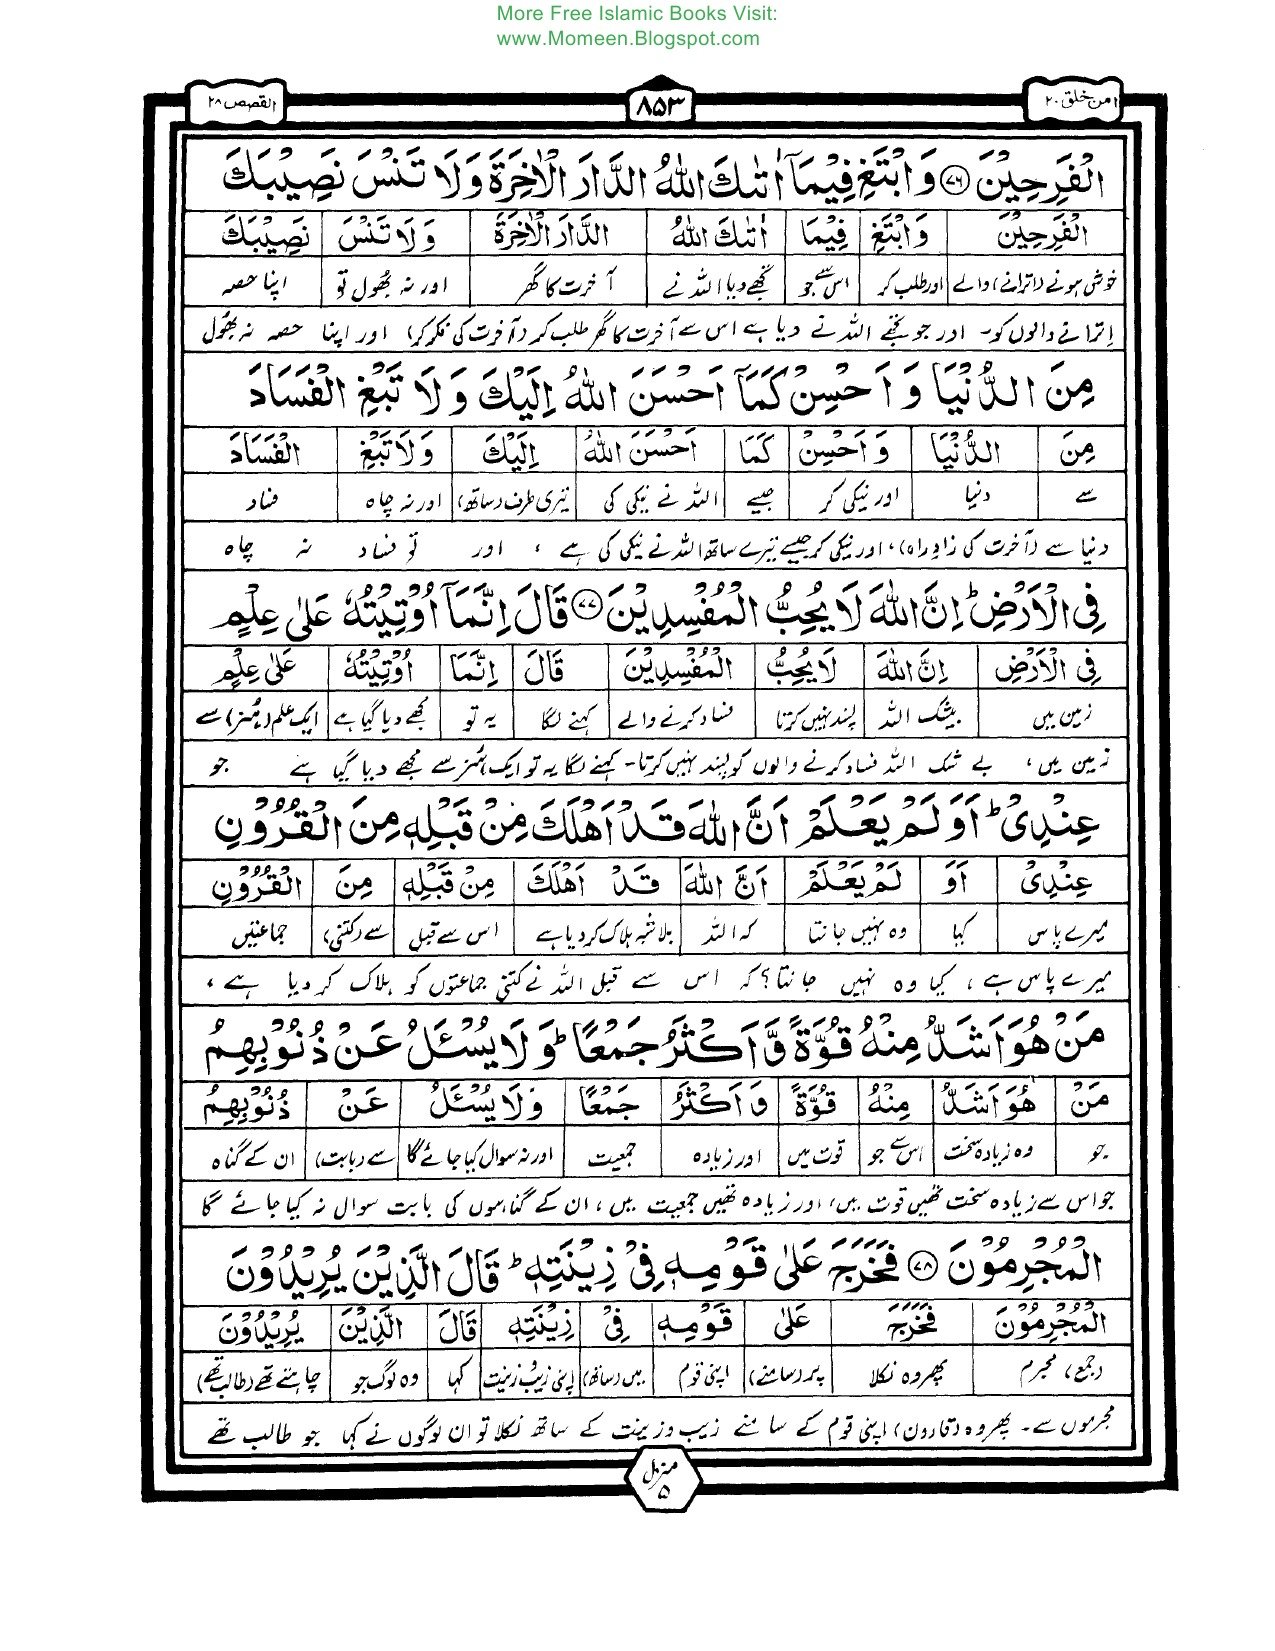 More Free Islamic Books Visit:
www.Momeen.Blogspot.com
امن خلق ۲۰ ۸۵۳ القصص ۲۸
الْفَرِحِيْنَ ۷۶ وَابْتَغِ فِيْمَاۤ اٰتٰىكَ اللّٰهُ الدَّارَ الْاٰخِرَةَ وَلَا تَنْسَ نَصِيْبَكَ
الْفَرِحِيْنَ وَابْتَغِ فِيْمَا اٰتٰىكَ اللّٰهُ الدَّارَ الْاٰخِرَةَ وَلَا تَنْسَ نَصِيْبَكَ
خوش ہونے (اترانے) والے اور طلب کر اس سے جو تجھے دیا اللہ نے آخرت کا گھر اور نہ بھول تو اپنا حصہ
اِترانے والوں کو۔ اور جو تجھے اللہ نے دیا ہے اس سے آخرت کا گھر طلب کر (آخرت کی فکر کر) اور اپنا حصہ نہ بھُول
مِنَ الدُّنْيَا وَاَحْسِنْ كَمَاۤ اَحْسَنَ اللّٰهُ اِلَيْكَ وَلَا تَبْغِ الْفَسَادَ
مِنَ الدُّنْيَا وَاَحْسِنْ كَمَا اَحْسَنَ اللّٰهُ اِلَيْكَ وَلَا تَبْغِ الْفَسَادَ
سے دنیا اور نیکی کر جیسے اللہ نے نیکی کی تیری طرف (ساتھ) اور نہ چاہ فساد
دنیا سے (آخرت کی زادِ راہ)، اور نیکی کر جیسے تیرے ساتھ اللہ نے نیکی کی ہے ، اور تو فساد نہ چاہ
فِى الْاَرْضِ ؕ اِنَّ اللّٰهَ لَا يُحِبُّ الْمُفْسِدِيْنَ ۷۷ قَالَ اِنَّمَاۤ اُوْتِيْتُهٗ عَلٰى عِلْمٍ
فِى الْاَرْضِ اِنَّ اللّٰهَ لَا يُحِبُّ الْمُفْسِدِيْنَ قَالَ اِنَّمَا اُوْتِيْتُهٗ عَلٰى عِلْمٍ
زمین میں بیشک اللہ پسند نہیں کرتا فساد کرنے والے کہنے لگا یہ تو مجھے دیا گیا ہے ایک علم (ہنر) سے
زمین میں ، بے شک اللہ فساد کرنے والوں کو پسند نہیں کرتا۔ کہنے لگا یہ تو ایک ہُنر سے مجھے دیا گیا ہے جو
عِنْدِىْ ؕ اَوَلَمْ يَعْلَمْ اَنَّ اللّٰهَ قَدْ اَهْلَكَ مِنْ قَبْلِهٖ مِنَ الْقُرُوْنِ
عِنْدِىْ اَوَ لَمْ يَعْلَمْ اَنَّ اللّٰهَ قَدْ اَهْلَكَ مِنْ قَبْلِهٖ مِنَ الْقُرُوْنِ
میرے پاس کیا وہ نہیں جانتا کہ اللہ بلاشبہ ہلاک کر دیا ہے اس سے قبل سے (کتنی) جماعتیں
میرے پاس ہے ، کیا وہ نہیں جانتا؟ کہ اس سے قبل اللہ نے کتنی جماعتوں کو ہلاک کر دیا ہے ،
مَنْ هُوَ اَشَدُّ مِنْهُ قُوَّةً وَّاَكْثَرُ جَمْعًا ؕ وَلَا يُسْـَٔلُ عَنْ ذُنُوْبِهِمُ
مَنْ هُوَ اَشَدُّ مِنْهُ قُوَّةً وَاَكْثَرُ جَمْعًا وَلَا يُسْـَٔلُ عَنْ ذُنُوْبِهِمُ
جو وہ زیادہ سخت اس سے جو قوت میں اور زیادہ جمعیت اور نہ سوال کیا جائے گا سے (بابت) ان کے گناہ
جو اس سے زیادہ سخت تھیں قوت میں، اور زیادہ تھیں جمعیت میں ، ان کے گناہوں کی بابت سوال نہ کیا جائے گا
الْمُجْرِمُوْنَ ۷۸ فَخَرَجَ عَلٰى قَوْمِهٖ فِىْ زِيْنَتِهٖ ؕ قَالَ الَّذِيْنَ يُرِيْدُوْنَ
الْمُجْرِمُوْنَ فَخَرَجَ عَلٰى قَوْمِهٖ فِىْ زِيْنَتِهٖ قَالَ الَّذِيْنَ يُرِيْدُوْنَ
(جمع) مجرم پھر وہ نکلا پر (سامنے) اپنی قوم میں (ساتھ) اپنی زیب و زینت کہا وہ لوگ جو چاہتے تھے (طالب تھے)
مجرموں سے۔ پھر وہ (قارون) اپنی قوم کے سامنے زیب و زینت کے ساتھ نکلا تو ان لوگوں نے کہا جو طالب تھے
منزل ۵